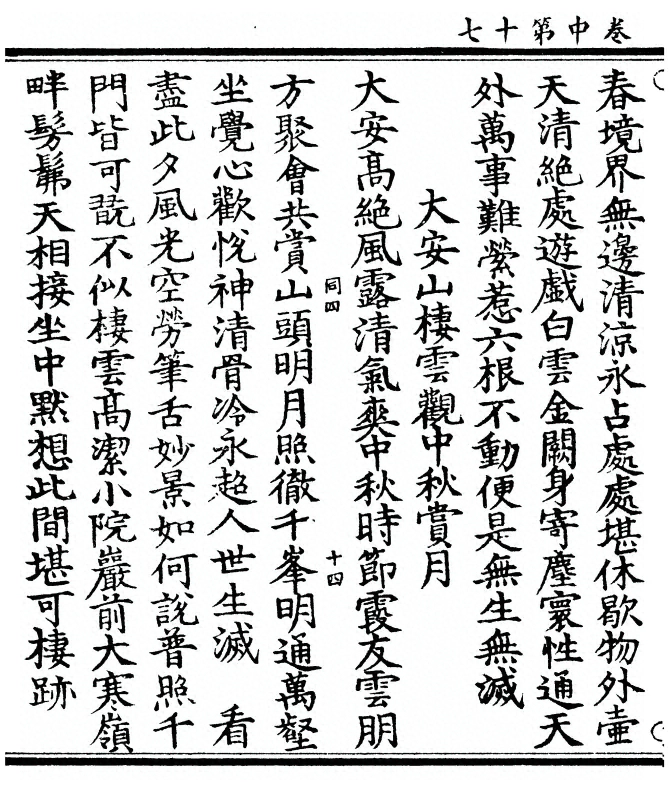 卷中第十七
春境界無邊清涼永占處處堪休歇物外壺
天清絕處遊戲白雲金闕身寄塵寰性通天
外萬事難縈惹六根不動便是無生無滅
大安山棲雲觀中秋賞月
大安高絕風露清氣爽中秋時節霞友雲朋
同四
十四
方聚會共賞山頭明月照徹千峯明通萬壑
坐覺心歡悅神清骨冷永超人世生滅　看
盡此夕風光空勞筆舌妙景如何說普照千
門皆可翫不似棲雲高潔小院巖前大寒嶺
畔髣髴天相接坐中默想此間堪可棲跡